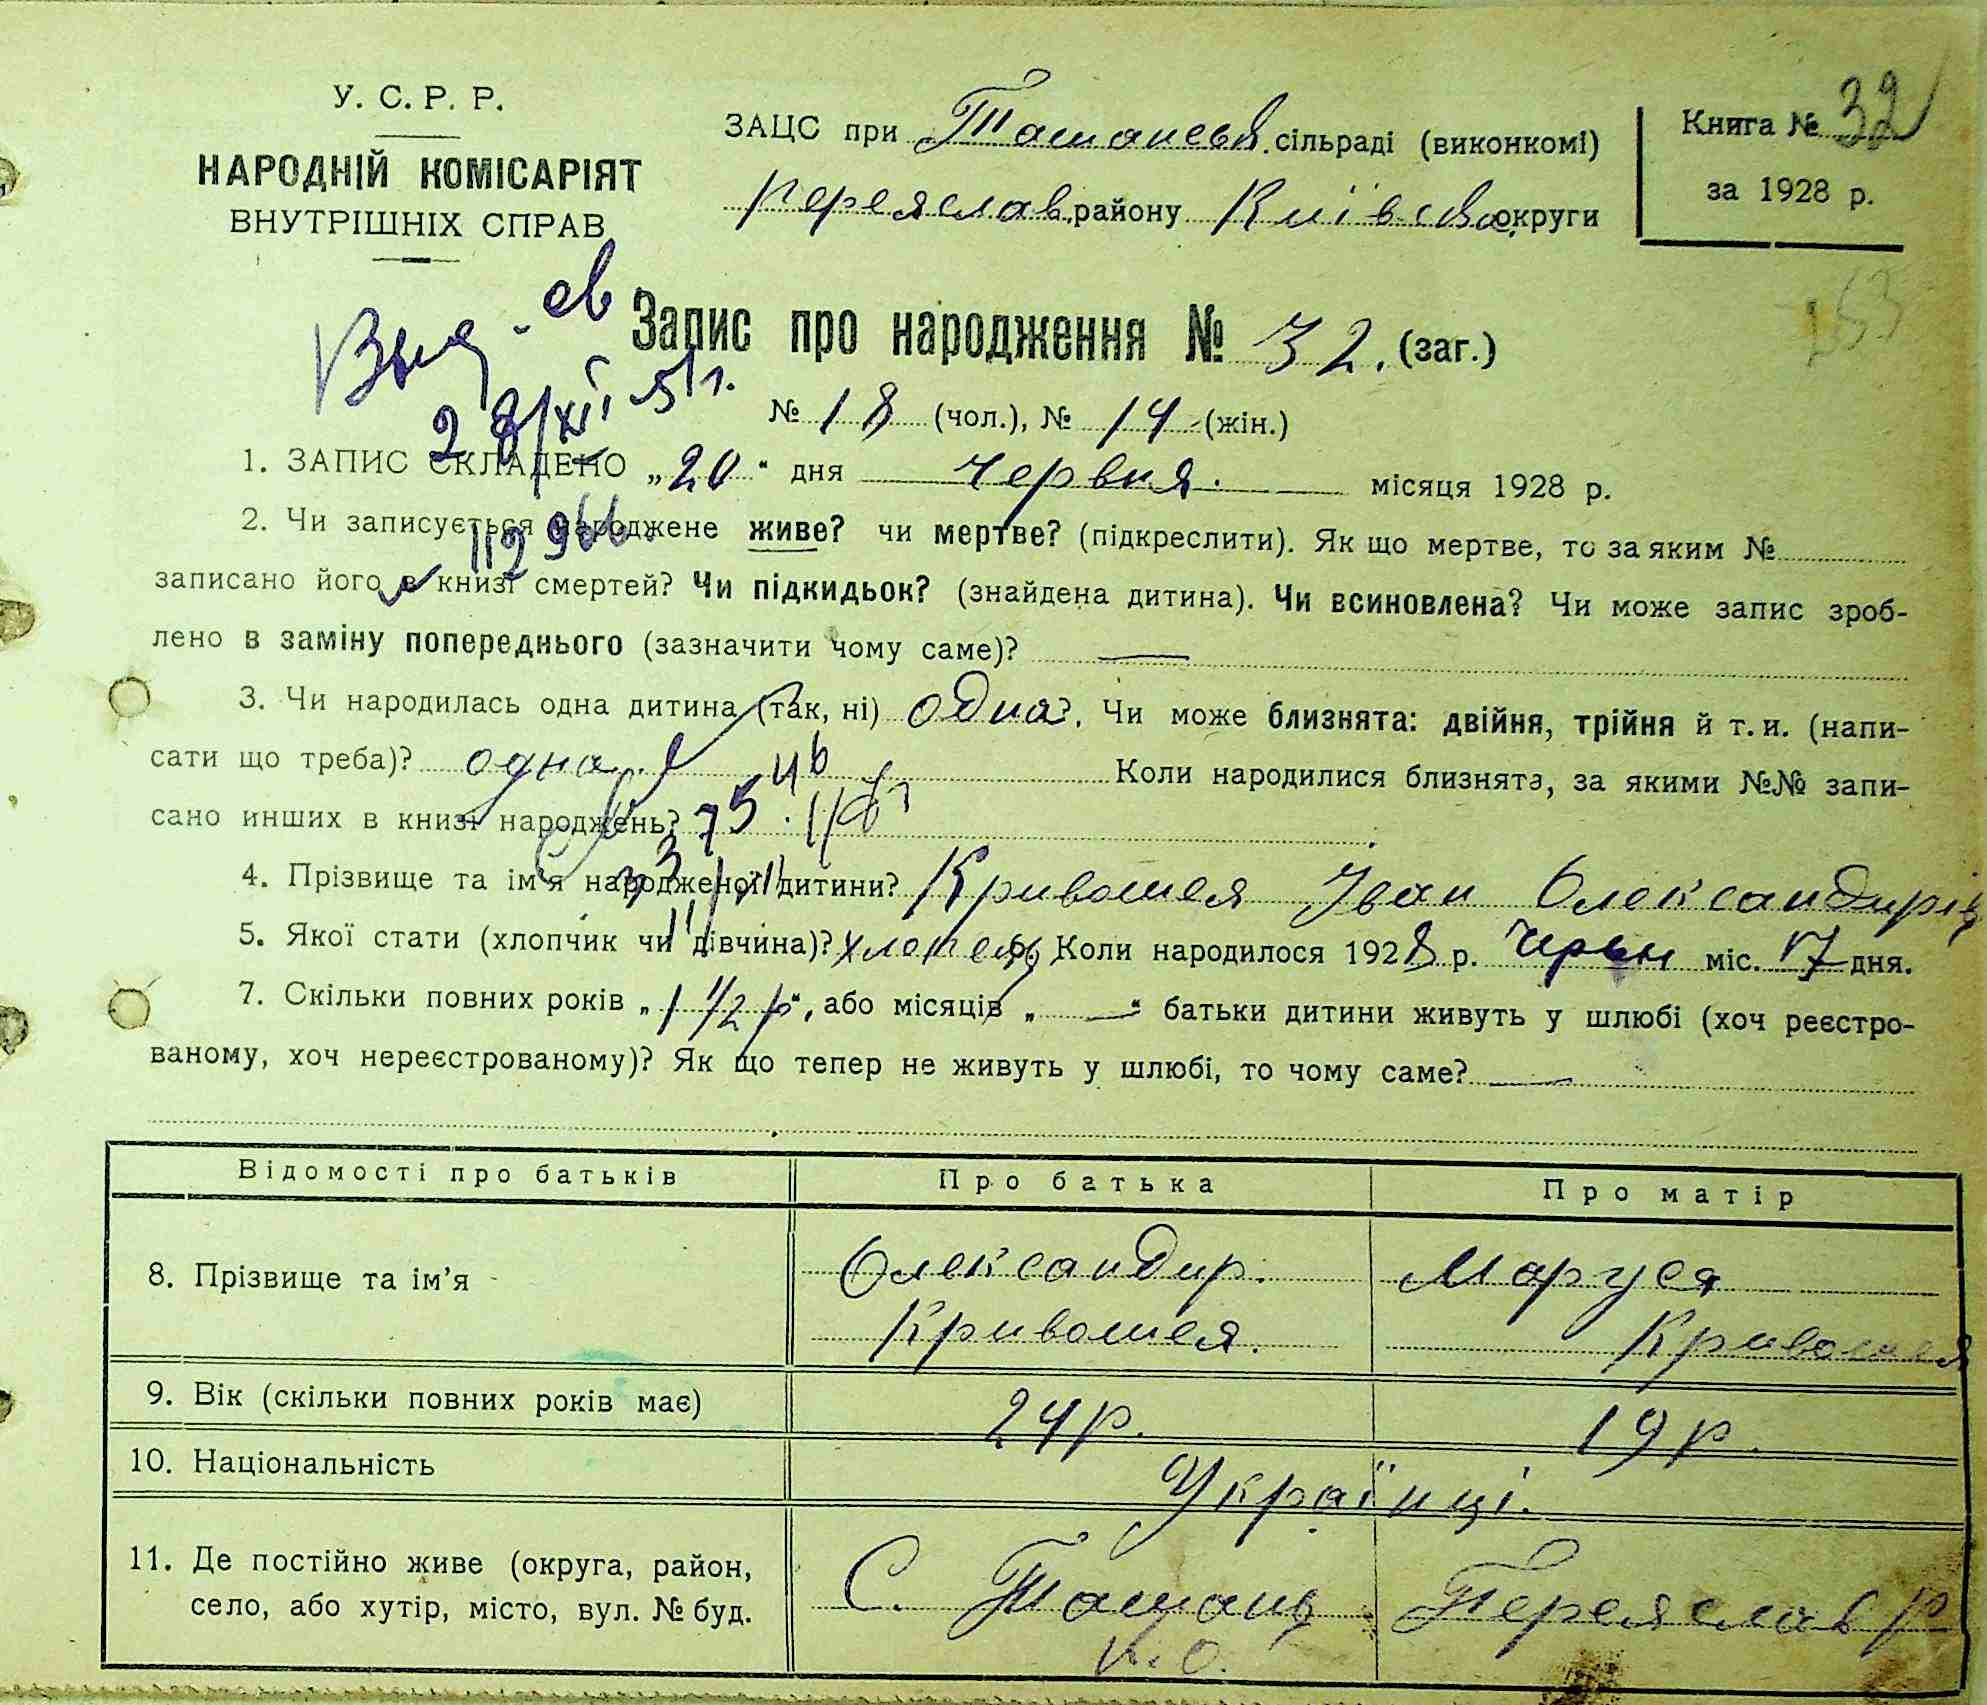 У. С. Р. Р.
НАРОДНІЙ КОМІСАРІЯТ
ВНУТРІШНІХ СПРАВ
ЗАЦС при Ташанськ. сільраді (виконкомі)
Переяслав. району Київсько. округи
Книга № 32
за 1928 р.
Запис про народження № 32. (заг.)
№ 18 (чол.), № 14 (жін.)
28/XII 51 г.
1. ЗАПИС СКЛАДЕНО „20“ дня червня. місяця 1928 р.
2. Чи записується народжене живе? чи мертве? (підкреслити). Як що мертве, то за яким №
записано його в книзі смертей? Чи підкидьок? (знайдена дитина). Чи всиновлена? Чи може запис зроб-
лено в заміну попереднього (зазначити чому саме)? —
3. Чи народилась одна дитина (так, ні) одна?. Чи може близнята: двійня, трійня й т. и. (напи-
сати що треба)? одна. Коли народилися близнята, за якими №№ запи-
сано инших в книзі народжень?
4. Прізвище та ім'я народженої дитини? Кривошея Іван Олександирів
5. Якої стати (хлопчик чи дівчина)? хлопець 6. Коли народилося 1928 р. Черьвн міс. 17 дня.
7. Скільки повних років „1 1/2 р“, або місяців „—“ батьки дитини живуть у шлюбі (хоч реєстро-
ваному, хоч нереєстрованому)? Як що тепер не живуть у шлюбі, то чому саме? —
Відомості про батьків Про батька Про матір
8. Прізвище та ім'я Олександир. Кривошея. Маруся Кривошея
9. Вік (скільки повних років має) 24 р. 19 р.
10. Національність Українці.
11. Де постійно живе (округа, район,
село, або хутір, місто, вул. № буд. С. Ташань Переяслав р
К. О.